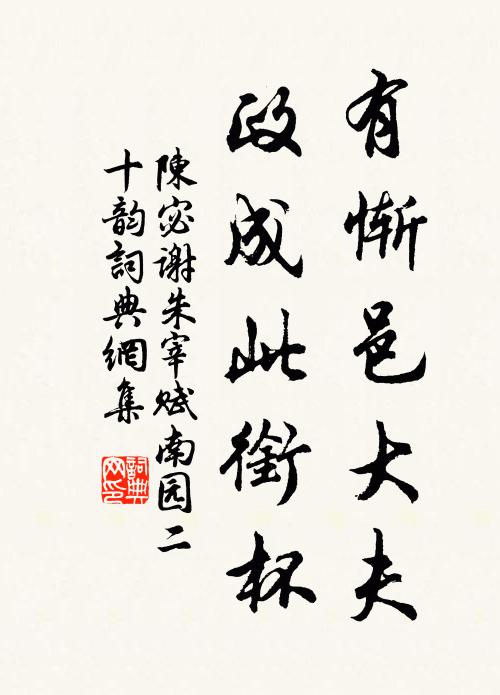 有慚邑大夫
政成此銜杯
陳宓谢朱宰赋南园二
十韵詞典網集
詞典
网印